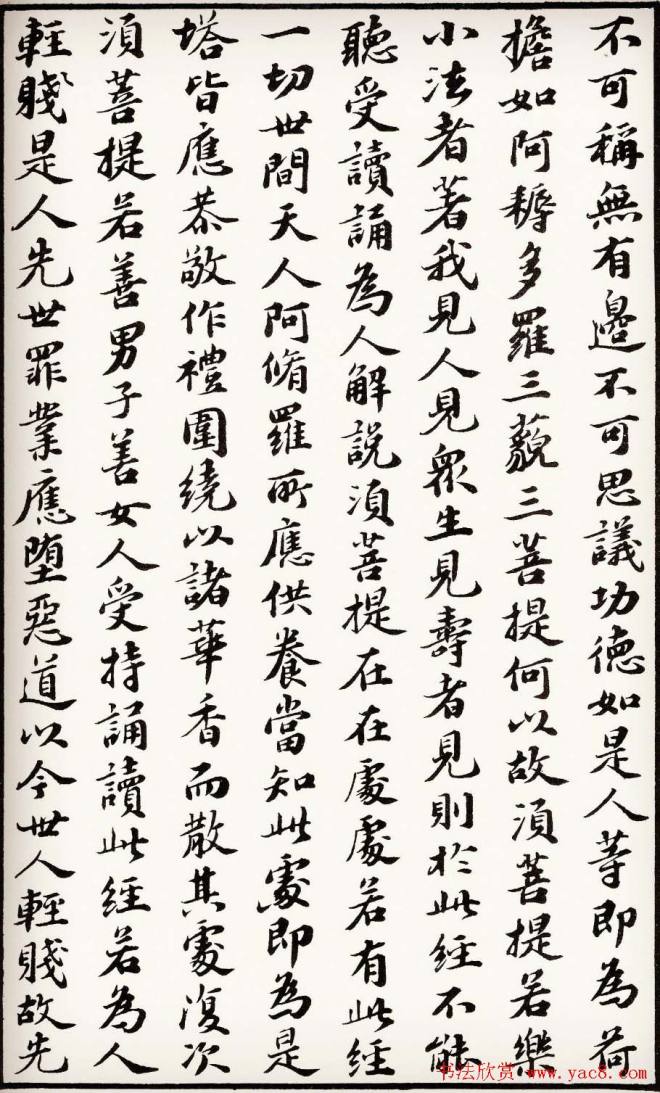 不可稱無有邊不可思議功德如是人等即為荷
擔如阿耨多羅三藐三菩提何以故須菩提若樂
小法者著我見人見眾生見壽者見則於此經不能
聽受讀誦為人解說須菩提在在處處若有此經
一切世間天人阿脩羅所應供養當知此處即為是
塔皆應恭敬作禮圍繞以諸華香而散其處復次
須菩提若善男子善女人受持誦讀此經若為人
輕賤是人先世罪業應墮惡道以今世人輕賤故先
书法欣赏 www.yac8.com